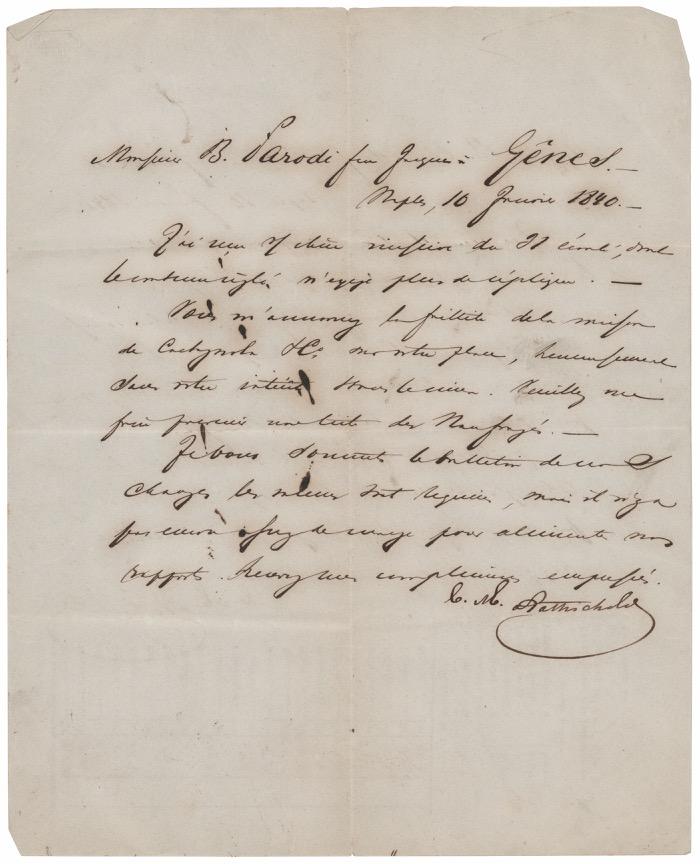 Monsieur B. Parodi feu Jacques à Gênes.—
Naples, 10 Janvier 1840.—
J'ai reçu v/ chère missive du 31 écoulé, dont
le contenu réglé n'exige plus de réplique. —
Vous m'annoncez la faillite de la maison
de & Co. sur votre place, heureusement
sans votre intérêt & sans le mien. Veuillez me
faire parvenir une liste des Naufragés. —
Je vous soumets le bulletin de nos
changes les mieux sont, mais il n'y a
pas encore assez de marge pour alimenter nos
rapports. Recevez mes compliments empressés.
C. M. Rothschild